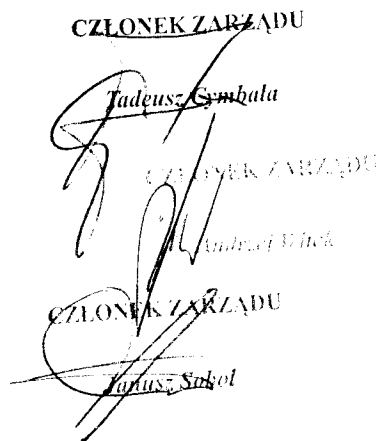 CZŁONEK ZARZĄDU
Tadeusz Cymbala
CZŁONEK ZARZĄDU
Andrzej
CZŁONEK ZARZĄDU
Janusz Sokol